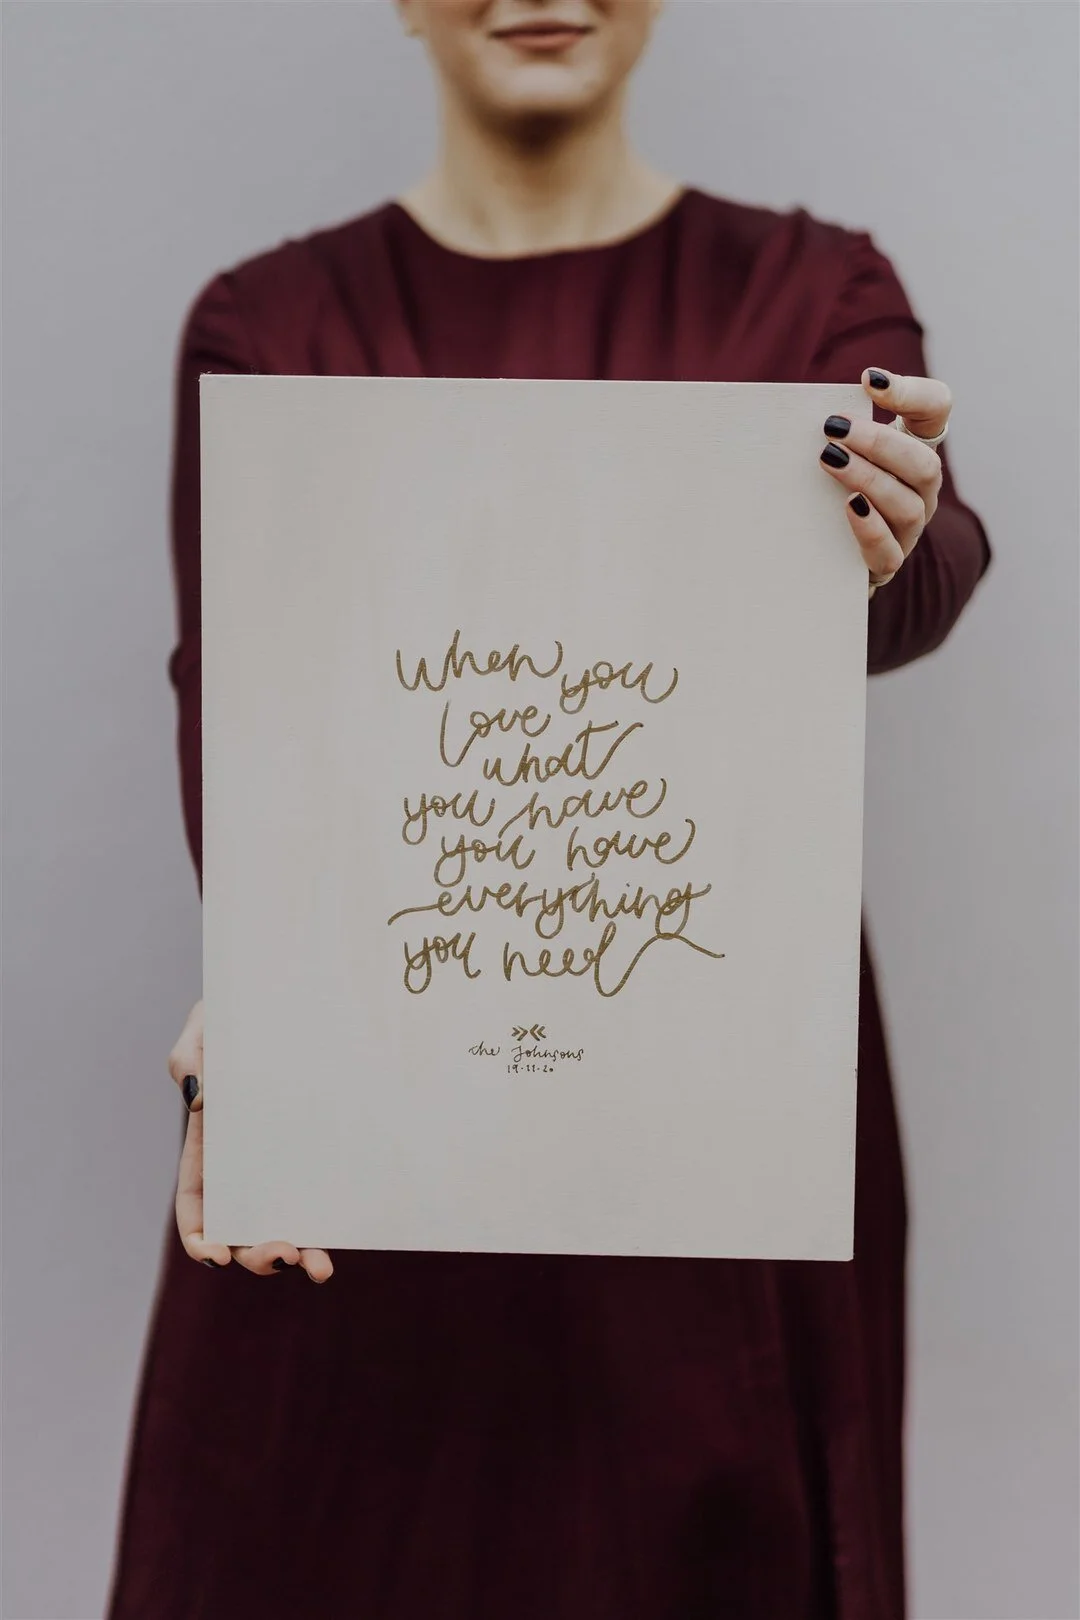 When you
love
what
you have
you have
everything
you need
the Johnsons
19-11-20